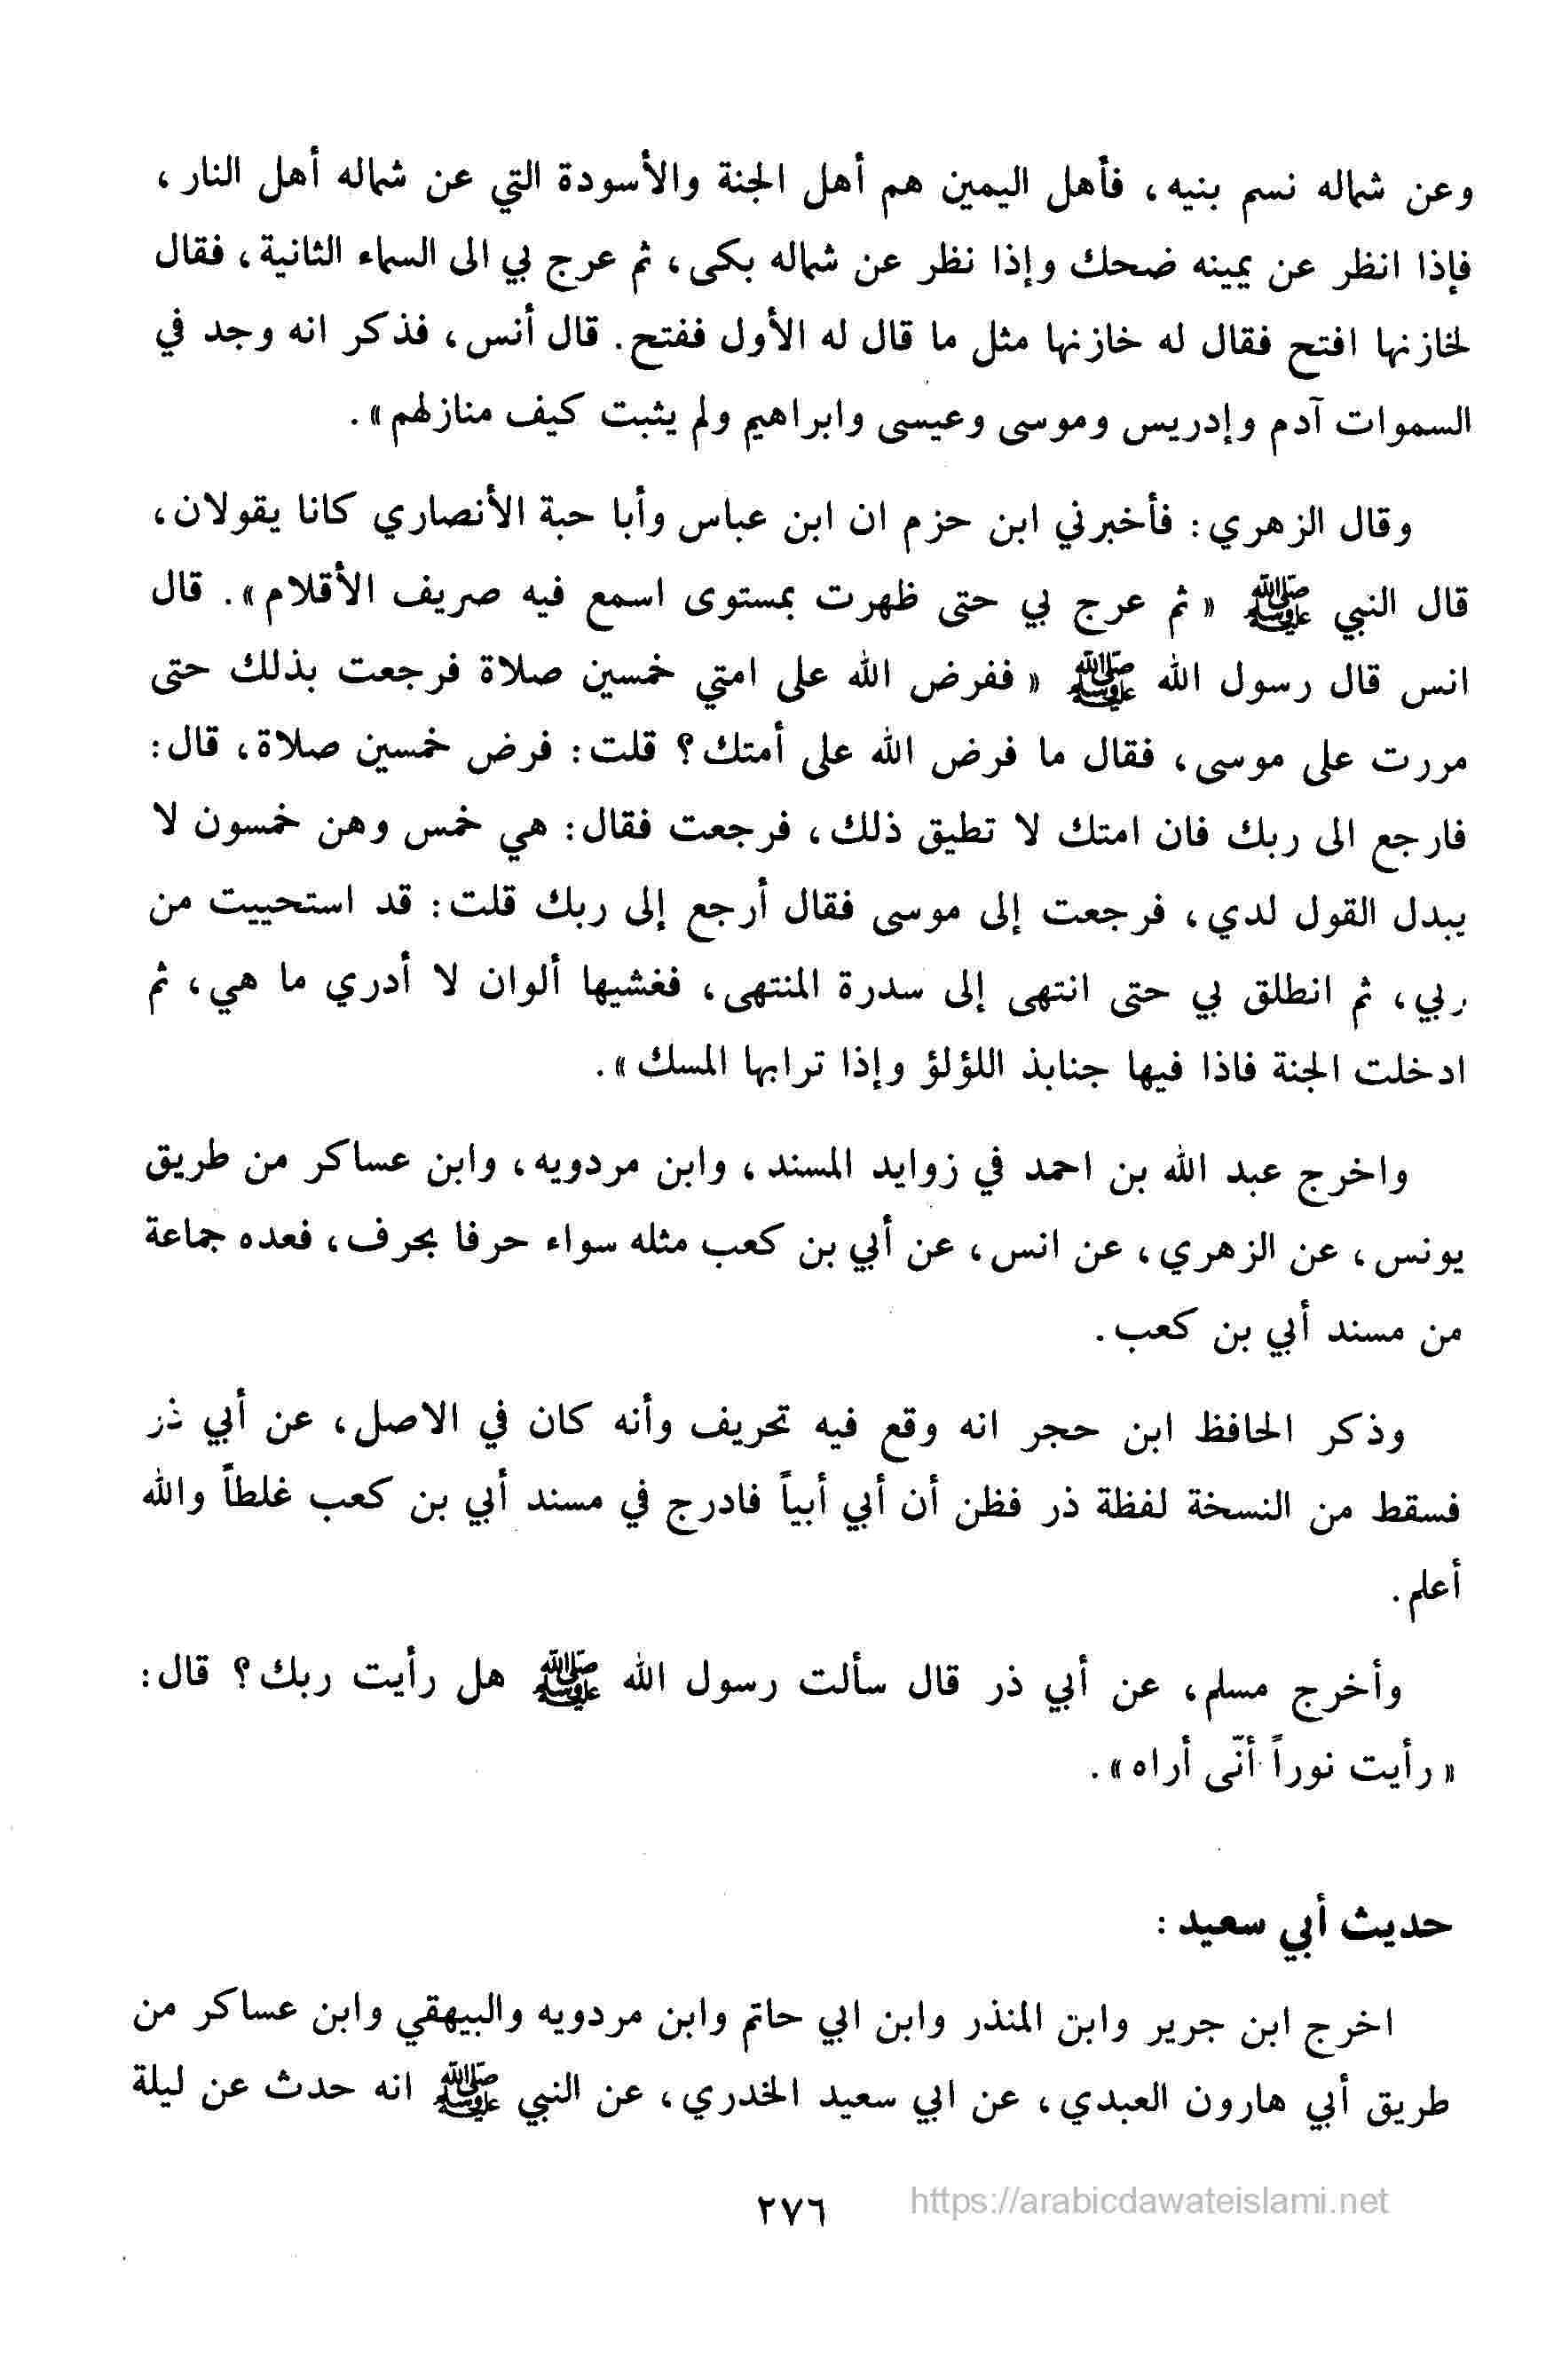 وعن شماله نسم بنيه، فأهل اليمين هم أهل الجنة والأسودة التي عن شماله أهل النار،
فإذا انظر عن يمينه ضحك وإذا نظر عن شماله بكى، ثم عرج بي الى السماء الثانية، فقال
لخازنها افتح فقال له خازنها مثل ما قال له الأول ففتح. قال أنس، فذكر انه وجد في
السموات آدم وإدريس وموسى وعيسى وابراهيم ولم يثبت كيف منازلهم».
وقال الزهري: فأخبرني ابن حزم ان ابن عباس وأبا حبة الأنصاري كانا يقولان،
قال النبي ﷺ «ثم عرج بي حتى ظهرت بمستوى اسمع فيه صريف الأقلام». قال
انس قال رسول الله ﷺ «ففرض الله على امتي خمسين صلاة فرجعت بذلك حتى
مررت على موسى، فقال ما فرض الله على أمتك؟ قلت: فرض خمسين صلاة، قال:
فارجع الى ربك فان امتك لا تطيق ذلك، فرجعت فقال: هي خمس وهن خمسون لا
يبدل القول لدي، فرجعت إلى موسى فقال أرجع إلى ربك قلت: قد استحييت من
ربي، ثم انطلق بي حتى انتهى إلى سدرة المنتهى، فغشيها ألوان لا أدري ما هي، ثم
ادخلت الجنة فاذا فيها جنابذ اللؤلؤ وإذا ترابها المسك».
واخرج عبد الله بن احمد في زوايد المسند، وابن مردويه، وابن عساكر من طريق
يونس، عن الزهري، عن انس، عن أبي بن كعب مثله سواء حرفا بحرف، فعده جماعة
من مسند أبي بن كعب.
وذكر الحافظ ابن حجر انه وقع فيه تحريف وأنه كان في الاصل، عن أبي ذر
فسقط من النسخة لفظة ذر فظن أن أبي أبياً فادرج في مسند أبي بن كعب غلطاً والله
أعلم.
وأخرج مسلم، عن أبي ذر قال سألت رسول الله ﷺ هل رأيت ربك؟ قال:
«رأيت نوراً أنّى أراه».
حديث أبي سعيد:
اخرج ابن جرير وابن المنذر وابن ابي حاتم وابن مردويه والبيهقي وابن عساكر من
طريق أبي هارون العبدي، عن ابي سعيد الخدري، عن النبي ﷺ انه حدث عن ليلة
٢٧٦
https://arabicdawateislami.net